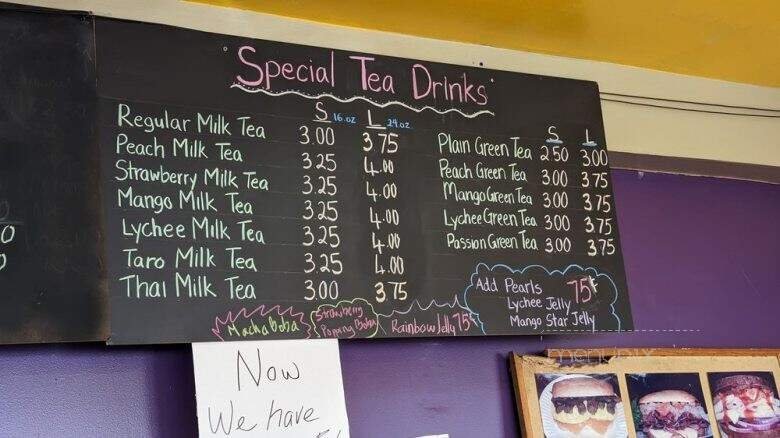 Special Tea Drinks
S 16.oz L 24.oz
Regular Milk Tea 3.00 3.75
Peach Milk Tea 3.25 4.00
Strawberry Milk Tea 3.25 4.00
Mango Milk Tea 3.25 4.00
Lychee Milk Tea 3.25 4.00
Taro Milk Tea 3.25 4.00
Thai Milk Tea 3.00 3.75
S L
Plain Green Tea 2.50 3.00
Peach Green Tea 3.00 3.75
Mango Green Tea 3.00 3.75
Lychee Green Tea 3.00 3.75
Passion Green Tea 3.00 3.75
Add Pearls 75¢
Lychee Jelly
Mango Star Jelly
Macha Boba
Strawberry
Popping Boba
Rainbow Jelly 75¢
Now
We have